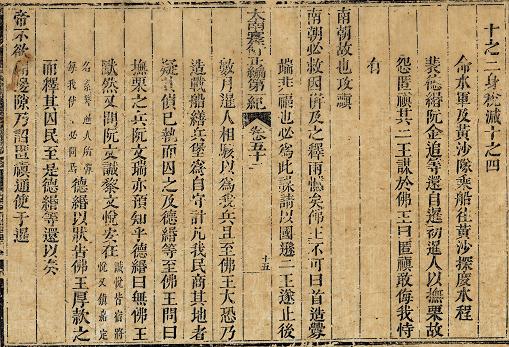 十之二身稅減十之四
命水軍及黃沙隊乘船往黃沙探度水程
裴德縉阮金追等還自暹初暹人以撫栗故
怨匿禛其二王謀於佛王曰匿禛敢侮我恃
有
南朝故也攻禛
南朝必救因而及之釋兩憾矣佛王不可曰首造釁
端非福也必為此謀請以國遜二王遂止後
大南寔錄正編第一紀 卷五十
十五
數月暹人相駭以為我兵且至佛王大恐乃
造戰船繕兵堡為自守計凡我民商其地者
疑其偵已執而囚之及德縉等至佛王問曰
撫栗之兵阮文瑞亦預知乎德縉曰無佛王
默然又問阮文誠黎文悅安在 誠悅皆宿將 悅又鎮嘉定
名素著暹人所憚 每我使必問焉 德縉以狀告佛王厚款之
而釋其囚民至是德縉等還以奏
帝不欲開邊隙乃詔匿禛通使于暹